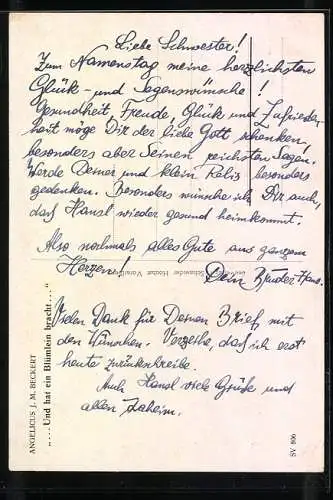 Liebe Schwester!
Zum Namenstag meine herzlichsten
Glück- und Segenswünsche!
Gesundheit, Freude, Glück und Zufrieden-
heit möge Dir der liebe Gott schenken,
besonders aber Seinen reichsten Segen.
Werde Deiner und klein besonders
gedenken. Besonders wünsche ich Dir auch,
daß Hansl wieder gesund heimkommt.
Also nochmals alles Gute aus ganzem
Herzen!
Dein Bruder Hans.
Vielen Dank für Deinen Brief mit
den Wünschen. Verzeihe, daß ich erst
heute zurückschreibe.
Auch Hansl viele Grüße und
allen Daheim.
ANGELICUS J. M. BECKERT
„... Und hat ein Blümlein bracht ..."
SV 806